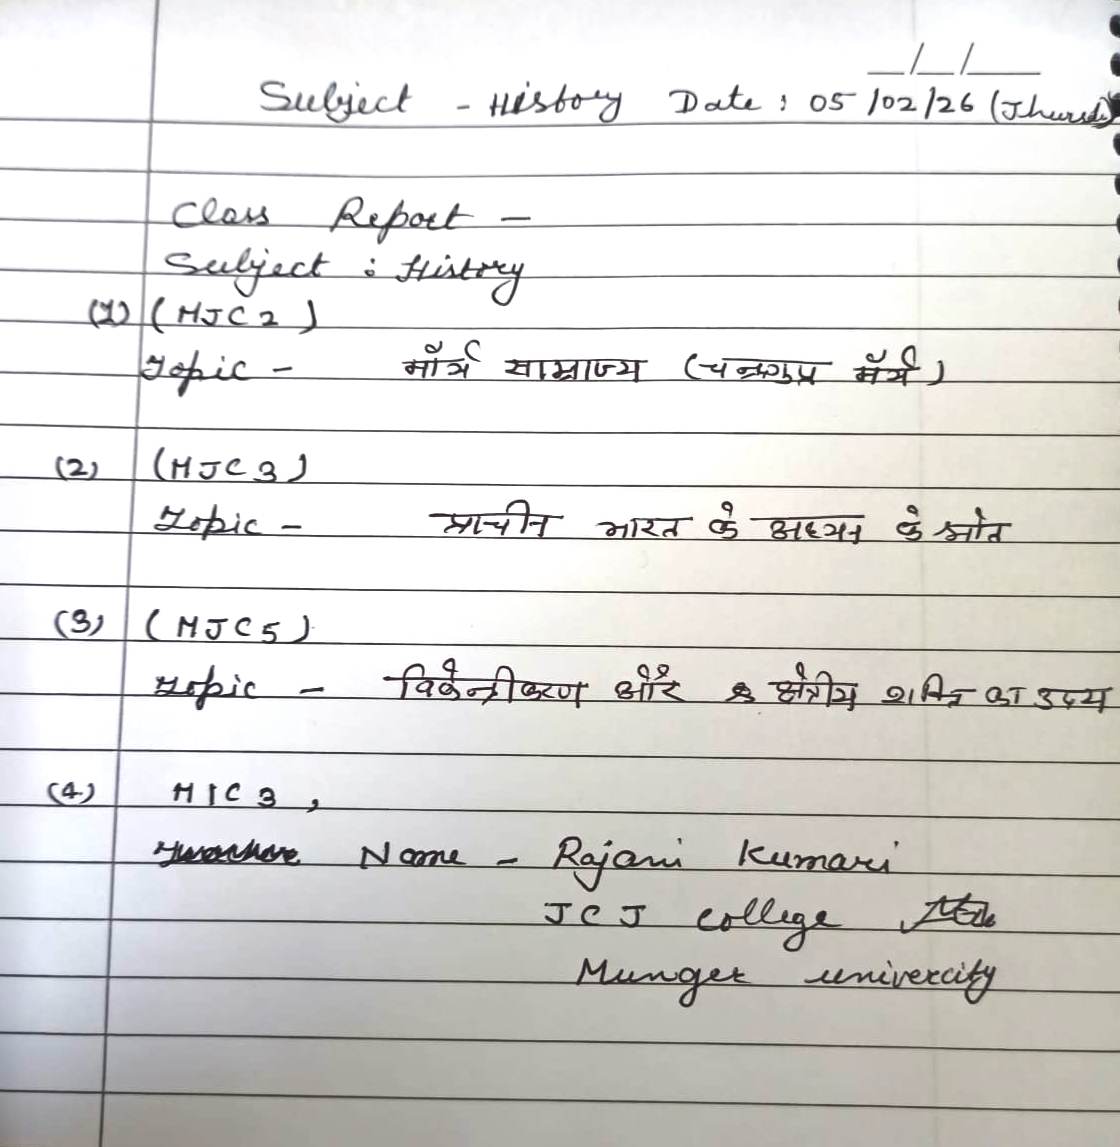 Subject - History Date : 05/02/26 (Thursd)
Class Report -
Subject : History
(1) (MJC2)
Topic - मौर्य साम्राज्य (चन्द्रगुप्त मौर्य)
(2) (MJC3)
Topic - प्राचीन भारत के अध्यन के स्रोत
(3) (MJC5)
Topic - विकेन्द्रीकरण और क्षेत्रीय शक्ति का उदय
(4) MIC3,
Name - Rajani Kumari
JCJ college
Munger univercity